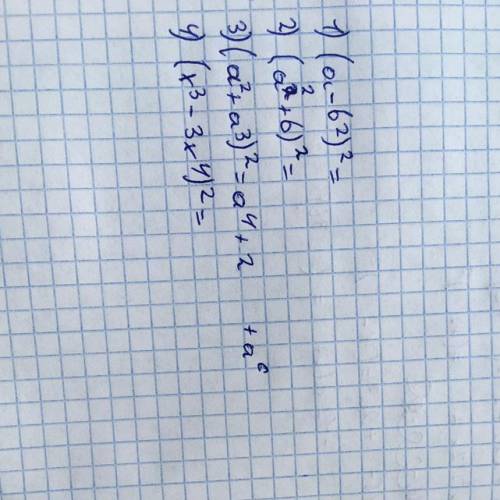 1) (a - b²)² =
2) (a² + b)² =
3) (a² + a³)² = a⁴ + 2 + a⁶
4) (x³ - 3x⁴)² =